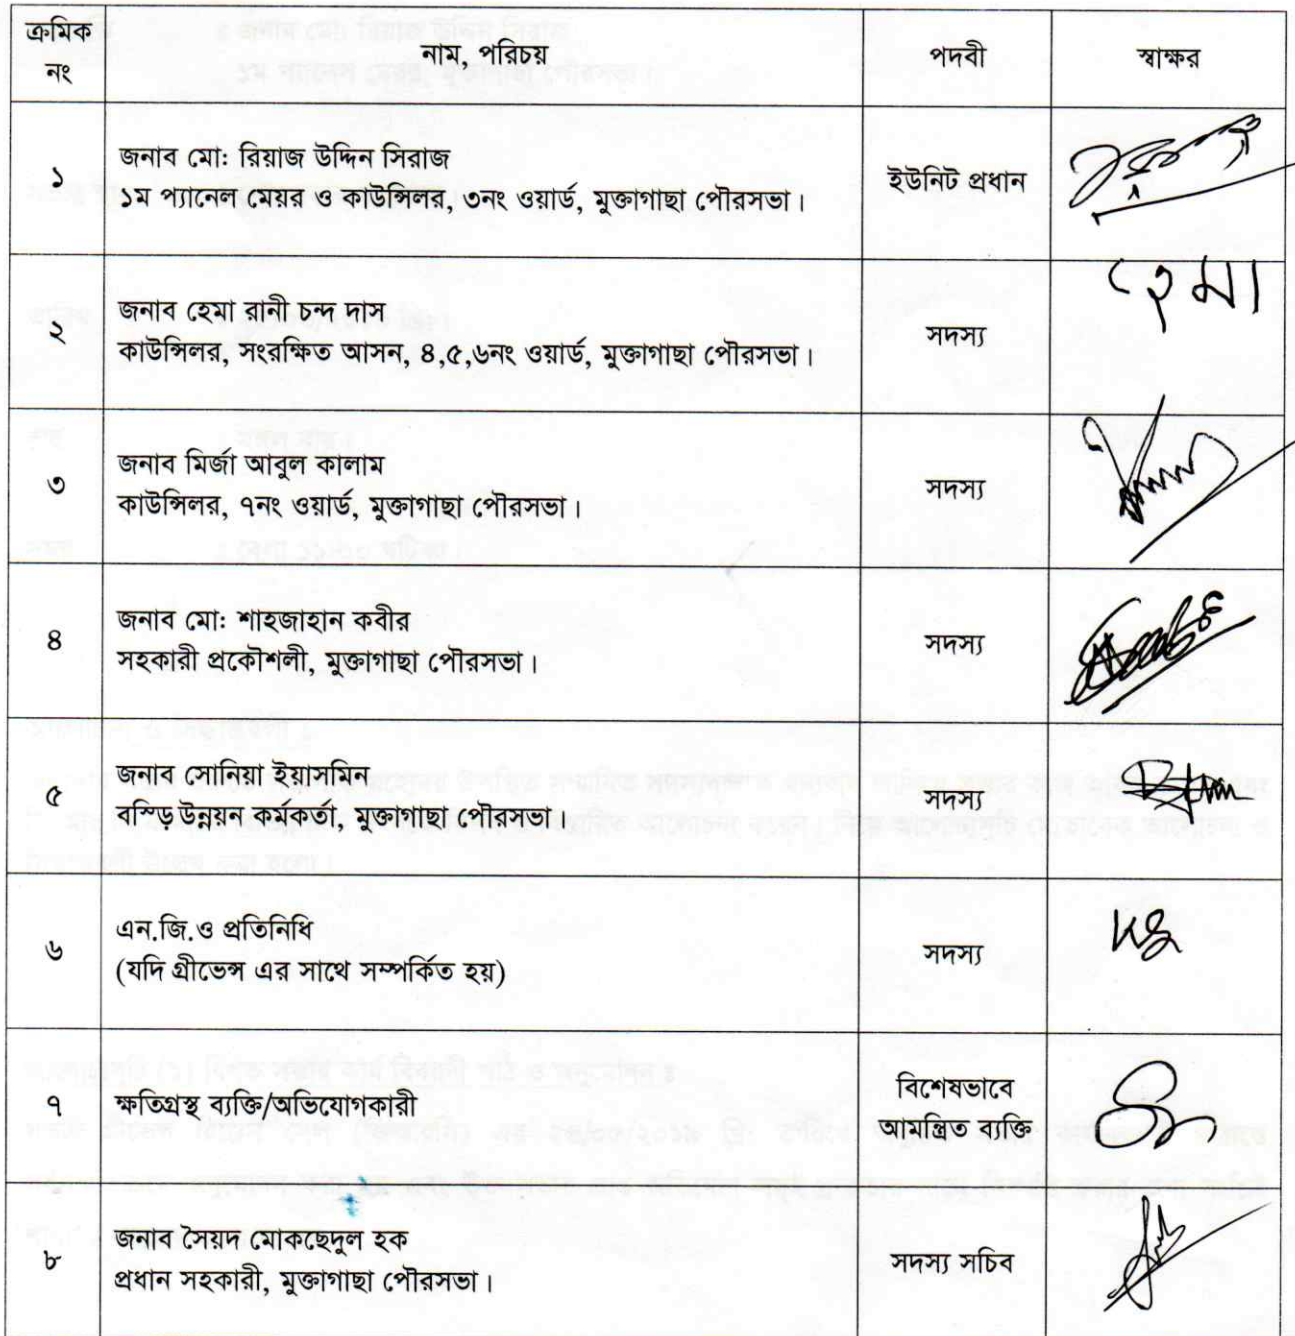 ক্রমিক নং
নাম, পরিচয়
পদবী
স্বাক্ষর
১
জনাব মো: রিয়াজ উদ্দিন সিরাজ
১ম প্যানেল মেয়র ও কাউন্সিলর, ৩নং ওয়ার্ড, মুক্তাগাছা পৌরসভা।
ইউনিট প্রধান
২
জনাব হেমা রানী চন্দ দাস
কাউন্সিলর, সংরক্ষিত আসন, ৪,৫,৬নং ওয়ার্ড, মুক্তাগাছা পৌরসভা।
সদস্য
হেমা
৩
জনাব মির্জা আবুল কালাম
কাউন্সিলর, ৭নং ওয়ার্ড, মুক্তাগাছা পৌরসভা।
সদস্য
৪
জনাব মো: শাহজাহান কবীর
সহকারী প্রকৌশলী, মুক্তাগাছা পৌরসভা।
সদস্য
৫
জনাব সোনিয়া ইয়াসমিন
বস্তি উন্নয়ন কর্মকর্তা, মুক্তাগাছা পৌরসভা।
সদস্য
৬
এন.জি.ও প্রতিনিধি
(যদি গ্রীভেন্স এর সাথে সম্পর্কিত হয়)
সদস্য
৭
ক্ষতিগ্রস্থ ব্যক্তি/অভিযোগকারী
বিশেষভাবে
আমন্ত্রিত ব্যক্তি
৮
জনাব সৈয়দ মোকছেদুল হক
প্রধান সহকারী, মুক্তাগাছা পৌরসভা।
সদস্য সচিব